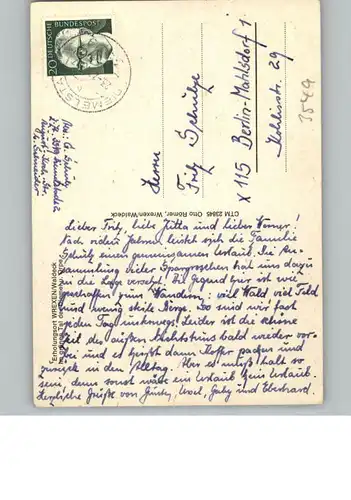 20 DEUTSCHE BUNDESPOST
DIEMELSTA
Herrn
Fritz Schulze
X 115 Berlin-Mahlsdorf 1.
29
3549
Abs. G. Schulz
CTM 23845 Otto Römer, Wrexen/Waldeck
Erholungsort WREXEN/Waldeck
Lieber Fritz, liebe Jutta und lieber Werner!
Nach vielen Jahren leistet sich die Familie
Schulz einen gemeinsamen Urlaub. Die An-
sammlung vieler Spargroschen hat uns dazu
in die Lage versetzt. Die Gegend hier ist wie
geschaffen zum Wandern: viel Wald, viel Feld
und wenig steile Berge. So sind wir fast
jeden Tag unterwegs. Leider ist die schöne
Zeit des süßen Nichtstuns bald wieder vor-
bei und es heißt dann Koffer packen und
zurück in den Alltag. Aber es muß halt so
sein, denn sonst wäre ein Urlaub kein Urlaub.
Herzliche Grüße von Günter, Gaby und Eberhard.